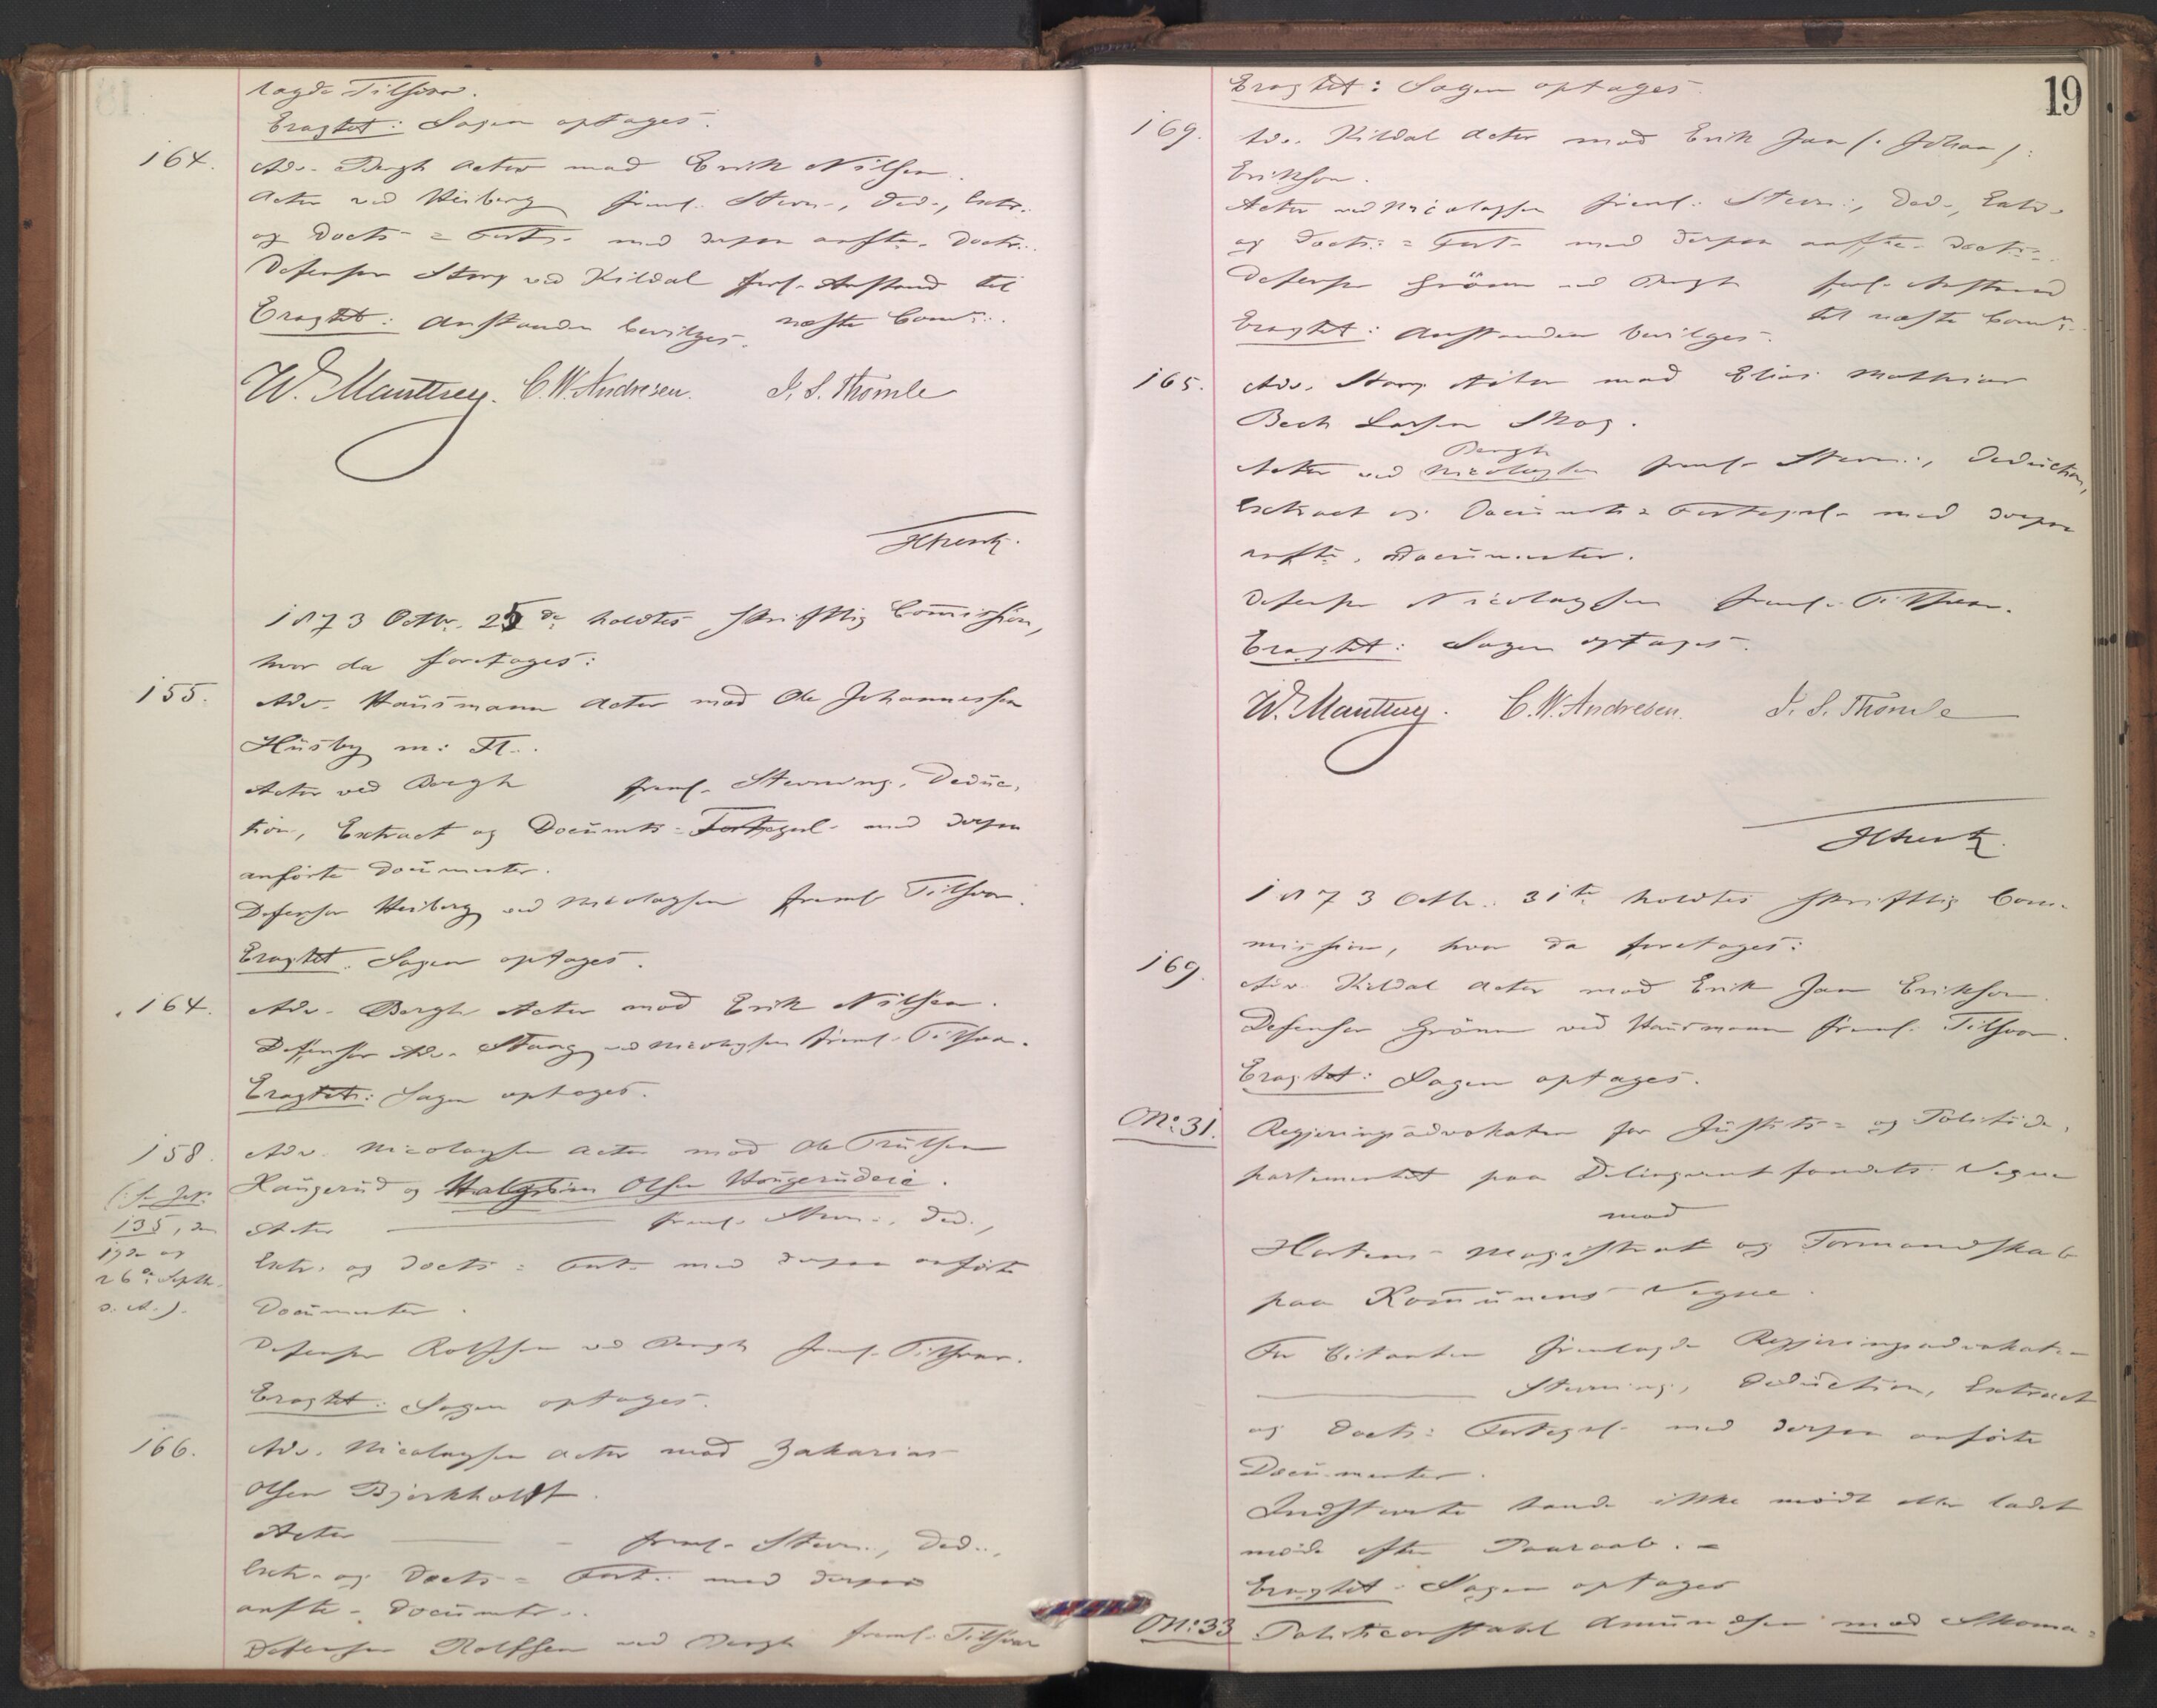 lagde Tilsvar.
Eragtet: Sagen optages.
164. Adv. Bergh Actor mod Erik Nilsen.
Actor ved Heiberg freml. Stevn., Ded., Extr.
og Docts = Fort. med derpaa anfte. Doctr.
Defensor Stang ved Kildal forl. Anstand til
næste Comn.
Eragtet: Anstanden bevilges.
W. Manthey. C.W. Andresen. I. S. Thomle
1873 Octbr. 25de holdtes skriftlig Commission,
hvor da foretages:
155. Adv. Hausmann Actor mod Ole Johannessen
Husby m: Fl.
Actor ved Bergh freml. Stevning, Deduc-
tion, Extract og Documts = Fortegnel. med derpaa
anførte Documenter.
Defensor Heiberg ved Nicolaysen freml. Tilsvar.
Eragtet. Sagen optages.
164. Adv. Bergh Actor mod Erik Nilsen.
Defensor Adv. Stang ved Nicolaysen freml. Tilsvar.
Eragtet: Sagen optages.
158. Adv. Nicolaysen Actor mod Ole Trulsen
Haugerud og Halgrim Olsen Haugerudeie.
(: se
135, den
19de og
26de Septbr.
d. A.).
Actor freml. Stevn., Ded.,
Extr. og Docts = Fort. med derpaa anførte
Documenter.
Defensor Rolfsen ved Bergh freml. Tilsvar.
Eragtet: Sagen optages.
166. Adv. Nicolaysen Actor mod Zakarias
Olsen Bjerkholdt.
Actor freml. Stevn., Ded.,
Extr. og Docts = Fort. med derpaa
anfte. Documtr.
Defensor Rolfsen ved Bergh freml. Tilsvar
19
Eragtet: Sagen optages.
169. Adv. Kildal Actor mod Erik Jan (: Johan):
Erikson.
Actor ved Nicolaysen freml. Stevn., Ded., Extr.
og Docts = Fort. med derpaa anfte. Doctr.
Defensor Grönn ved Bergh forl. Anstand
til næste Comn.
Eragtet: Anstanden bevilges.
165. Adv. Stang Actor mod Elias Mathias
Bech Larsen Skog.
Bergh
Actor ved Nicolaysen freml. Stevn., Deduction,
Extract og Documts = Fortegnel. med derpaa
anfte. Documenter.
Defensor Nicolaysen freml. Tilsvar.
Eragtet: Sagen optages.
W. Manthey. C.W. Andresen. I. S. Thomle
1873 Octbr. 31te holdtes skriftlig Com-
mission, hvor da foretages:
169. Adv. Kildal Actor mod Erik Jan Erikson.
Defensor Grönn ved Hausmann freml. Tilsvar.
Eragtet: Sagen optages.
No. 31. Regjeringsadvokaten for Justits = og Politide-
partementet paa Delinqventfondets Vegne
mod
Hortens Magistrat og Formandskab
paa Kommunens Vegne.
For Citanten fremlagde Regjeringsadvokaten
Stevning, Deduction, Extract
og Docts = Fortegnel. med derpaa anførte
Documenter.
Indstevnte havde ikke mødt eller ladet
møde efter Paaraab. =
Eragtet: Sagen optages
No. 33 Politiconstabel Amundsen mod Skoma-